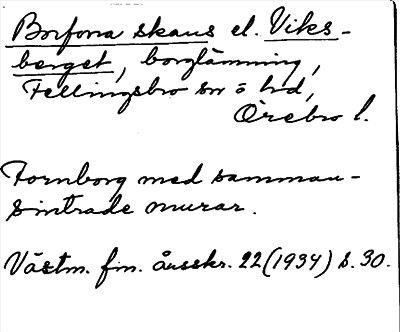 Borforra skans el. Viks-
berget, borglämning,
Fellingsbro sn o hd,
Örebro l.
Fornborg med samman-
sintrade murar.
Västm. fm. årsskr. 22 (1934) s. 30.